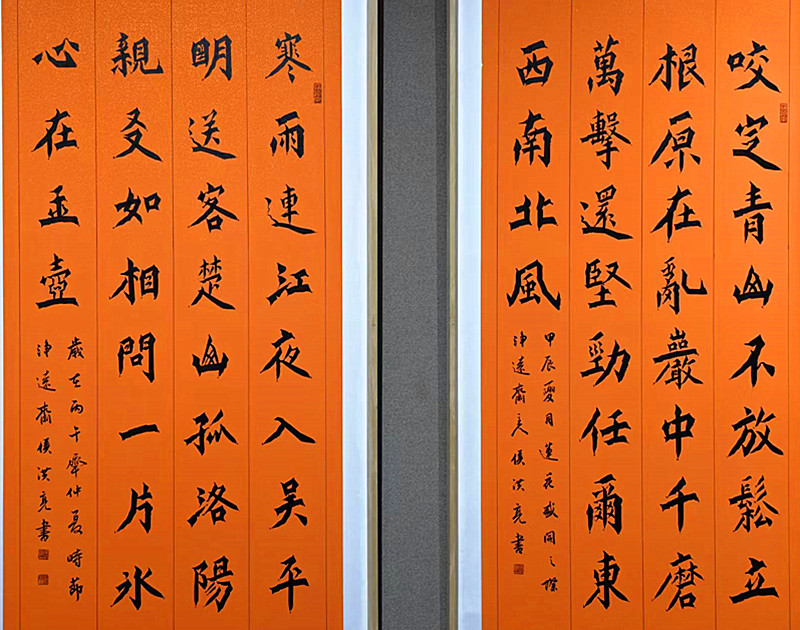 咬定青山不放鬆立
根原在亂巖中千磨
萬擊還堅勁任爾東
西南北風
甲辰夏月蓮花盛開之際
浄遠齋主侯洪亮書
寒雨連江夜入吳平
眀送客楚山孤洛陽
親友如相問一片氷
心在玉壺
歲在丙午仲夏時節
浄遠齋侯洪亮書